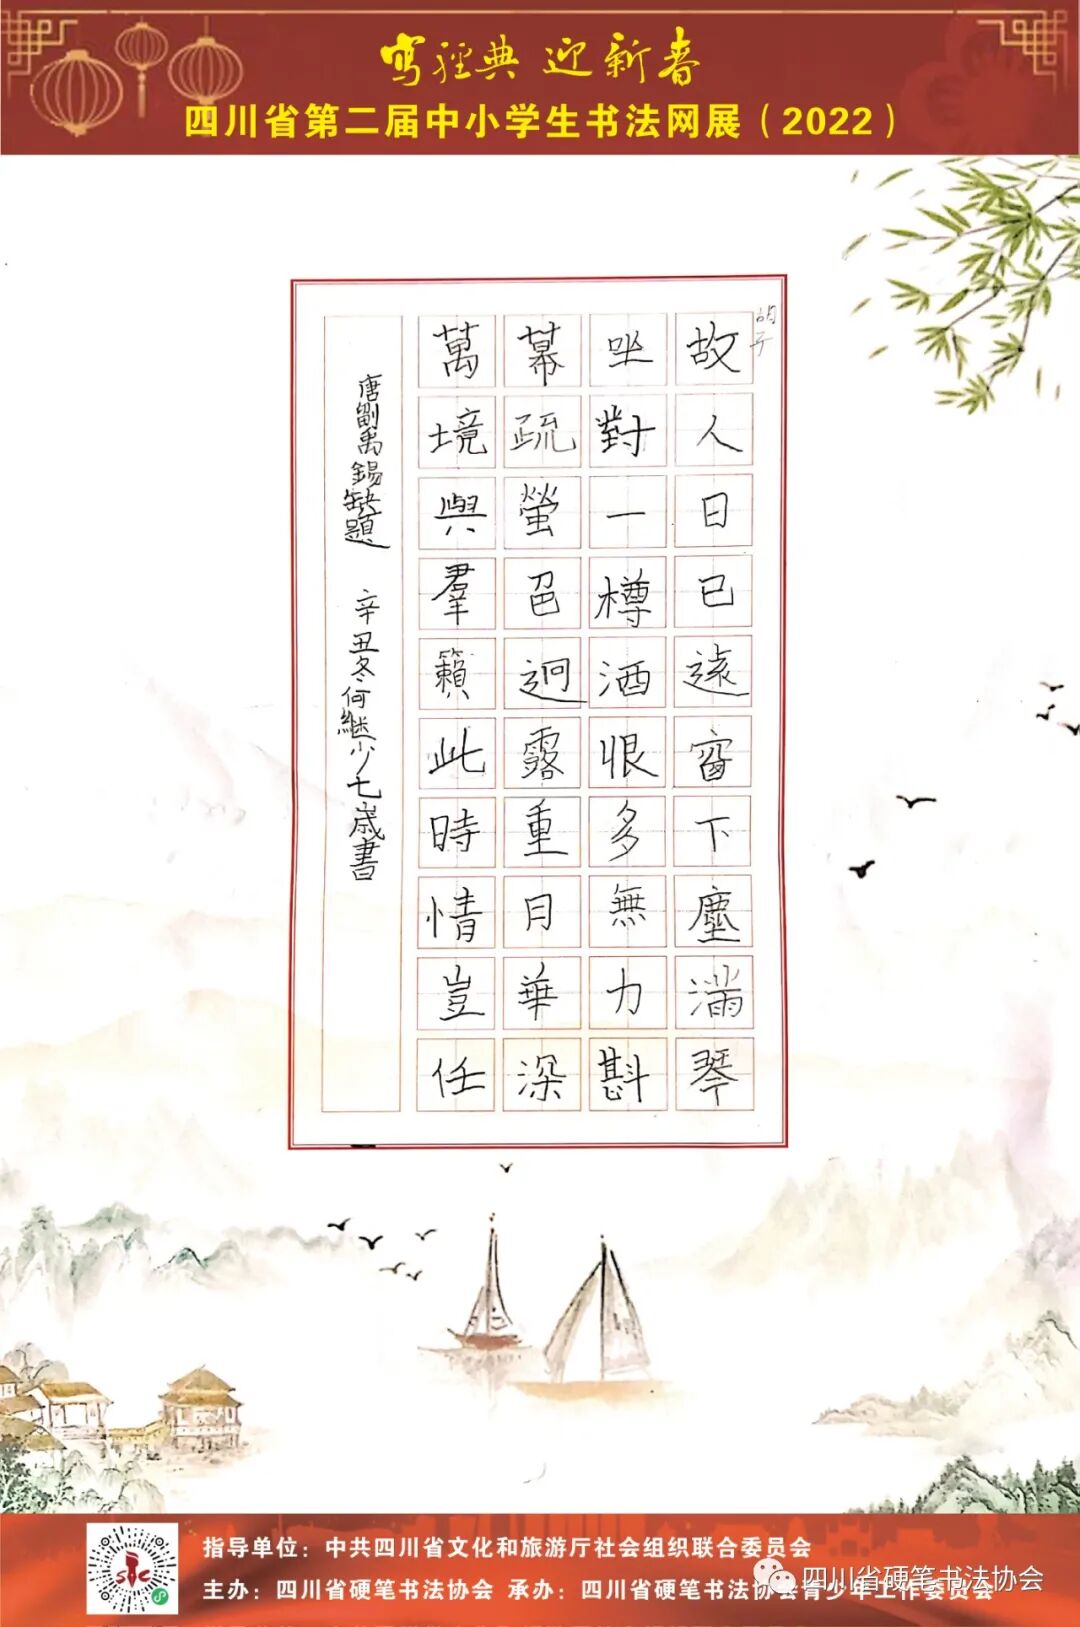 写經典 迎新春
四川省第二届中小学生书法网展（2022）
故人日已遠窗下塵滿琴
坐對一樽酒恨多無力斟
幕疏螢邑迥露重月華深
萬境與羣籟此時情豈任
唐劉禹錫缺題 辛丑冬何繼少七歲書
指导单位：中共四川省文化和旅游厅社会组织联合委员会
主办：四川省硬笔书法协会 承办：四川省硬笔书法协会青少年工作委员会
四川省硬笔书法协会